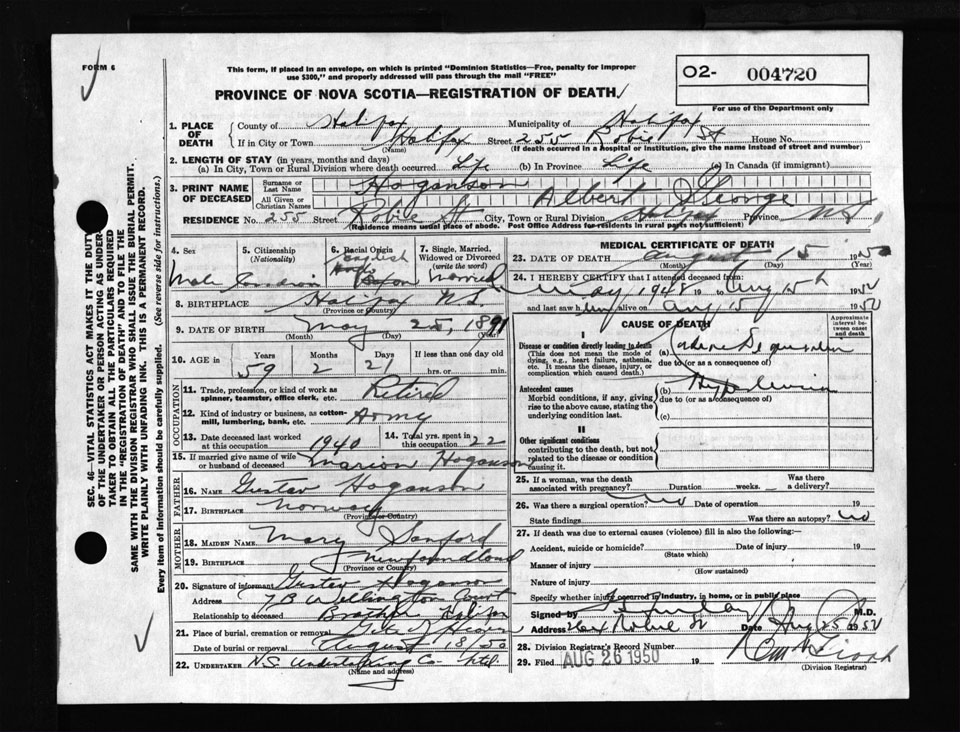 FORM 6
This form, if placed in an envelope, on which is printed "Dominion Statistics—Free, penalty for improper
use $300," and properly addressed will pass through the mail "FREE"
PROVINCE OF NOVA SCOTIA—REGISTRATION OF DEATH
O2- 004720
For use of the Department only
SEC. 46—VITAL STATISTICS ACT MAKES IT THE DUTY
OF THE UNDERTAKER OR PERSON ACTING AS UNDER-
TAKER TO OBTAIN ALL THE PARTICULARS REQUIRED
IN THE "REGISTRATION OF DEATH" AND TO FILE THE
SAME WITH THE DIVISION REGISTRAR WHO SHALL ISSUE THE BURIAL PERMIT.
WRITE PLAINLY WITH UNFADING INK. THIS IS A PERMANENT RECORD.
Every item of information should be carefully supplied. (See reverse side for instructions.)
1. PLACE OF DEATH
County of Halifax Municipality of Halifax
If in City or Town Halifax Street 255 Robie St House No.
(Name) (If death occurred in a hospital or institution, give the name instead of street and number)
2. LENGTH OF STAY (in years, months and days)
(a) In City, Town or Rural Division where death occurred Life (b) In Province Life (c) In Canada (if immigrant)
3. PRINT NAME OF DECEASED
Surname or Last Name Hoganson
All Given or Christian Names Albert George
RESIDENCE No. 255 Street Robie St City, Town or Rural Division Halifax Province N.S.
(Residence means usual place of abode. Post Office Address for residents in rural parts not sufficient)
4. Sex Male
5. Citizenship (Nationality) Canadian
6. Racial Origin English
7. Single, Married, Widowed or Divorced (write the word) Married
8. BIRTHPLACE Halifax N.S.
(Province or Country)
9. DATE OF BIRTH May 25, 1891
(Month) (Day) (Year)
10. AGE in Years Months Days If less than one day
59 2 21 hrs. or min.
OCCUPATION
11. Trade, profession, or kind of work as
spinner, teamster, office clerk, etc. Retired
12. Kind of industry or business, as cotton-
mill, lumbering, bank, etc. Army
13. Date deceased last worked
at this occupation 1940
14. Total yrs. spent in
this occupation 22
15. If married give name of wife
or husband of deceased Marion Hoganson
FATHER
16. NAME Gustav Hoganson
17. BIRTHPLACE Norway
(Province or Country)
MOTHER
18. MAIDEN NAME Mary Sanford
19. BIRTHPLACE Newfoundland
(Province or Country)
20. Signature of informant Gustav Hoganson
Address 7B Wellington Court
Relationship to deceased Brother Halifax
21. Place of burial, cremation or removal
Date of burial or removal August 18/50
22. UNDERTAKER N.S. Undertaking Co Ltd.
(Name and address)
MEDICAL CERTIFICATE OF DEATH
23. DATE OF DEATH August 15 1950
(Month) (Day) (Year)
24. I HEREBY CERTIFY that I attended deceased from
May 1948 19 to Aug 15th 1950
and last saw him alive on Aug 15 1950
CAUSE OF DEATH
Approximate interval between onset and death
I
Disease or condition directly leading to death
(This does not mean the mode of
dying, e.g., heart failure, asthenia,
etc. It means the disease, injury, or
complication which caused death.)
(a)
due to (or as a consequence of)
Antecedent causes
Morbid conditions, if any, giving
rise to the above cause, stating the
underlying condition last.
(b) Hypertension
due to (or as a consequence of)
(c)
II
Other significant conditions
contributing to the death, but not
related to the disease or condition
causing it.
25. If a woman, was the death
associated with pregnancy? Duration weeks.
Was there a
delivery?
26. Was there a surgical operation? no Date of operation 19
State findings Was there an autopsy? no
27. If death was due to external causes (violence) fill in also the following:
Accident, suicide or homicide? Date of injury 19
(State which)
Manner of injury
(How sustained)
Nature of injury
Specify whether injury occurred in industry, in home, or in public place
Signed by M.D.
Address Date Aug 25 1950
28. Division Registrar's Record Number
29. Filed AUG 26 1950 19
(Division Registrar)